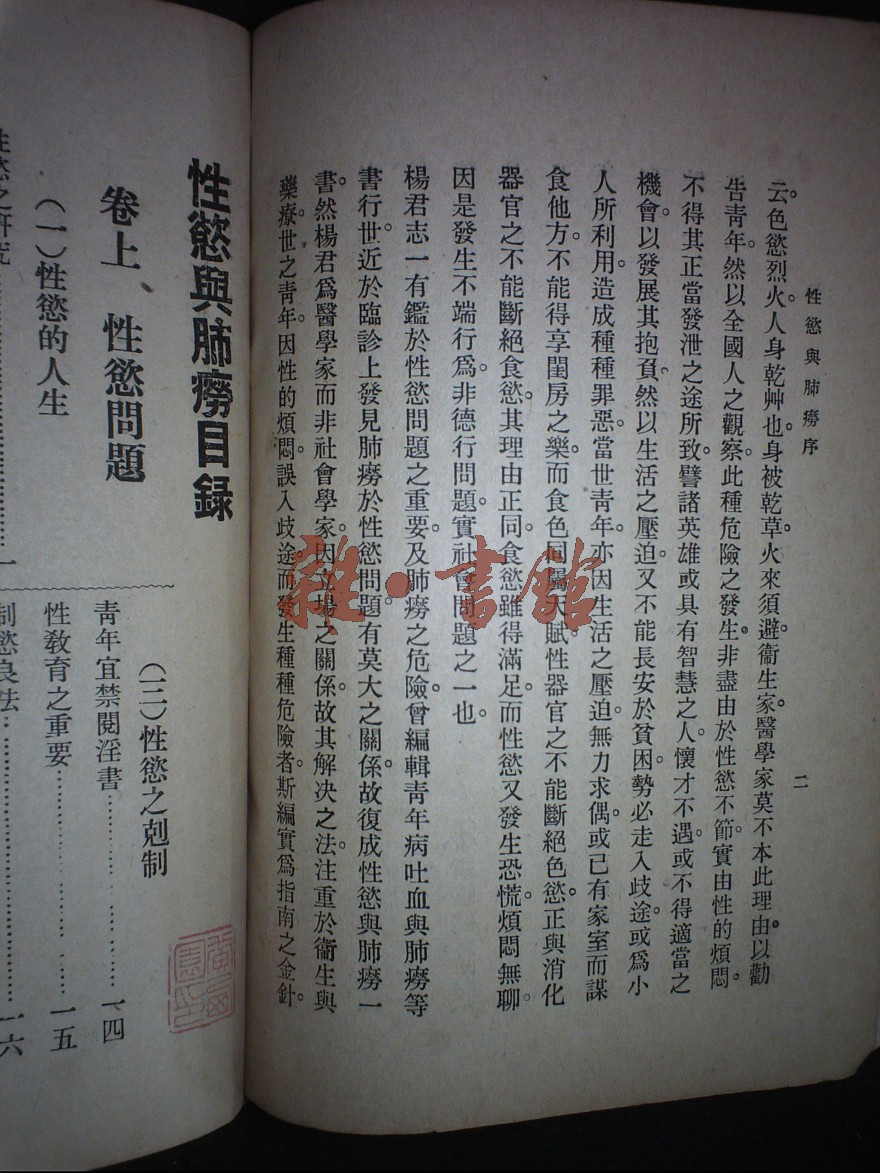 性慾與肺癆序
二
云。色慾烈火。人身乾艸也。身被乾草。火來須避。衞生家。醫學家。莫不本此理由。以勸
告青年。然以全國人之觀察。此種危險之發生。非盡由於性慾不節。實由性的煩悶。
不得其正當發泄之途所致。譬諸英雄或具有智慧之人。懷才不遇。或不得適當之
機會。以發展其抱負。然以生活之壓迫。又不能長安於貧困。勢必走入歧途。或爲小
人所利用。造成種種罪惡。當世青年。亦因生活之壓迫。無力求偶。或已有家室而謀
食他方。不能得享閨房之樂。而食色同屬天賦。性器官之不能斷絕色慾。正與消化
器官之不能斷絕食慾。其理由正同。食慾雖得滿足。而性慾又發生恐慌。煩悶無聊。
因是發生不端行爲。非德行問題。實社會問題之一也。
楊君志一有鑑於性慾問題之重要。及肺癆之危險。曾編輯青年病吐血與肺癆等
書行世。近於臨診上發見肺癆於性慾問題。有莫大之關係。故復成性慾與肺癆一
書。然楊君爲醫學家而非社會學家。因立場之關係。故其解決之法。注重於衞生與
藥療。世之青年。因性的煩悶。誤入歧途。而發生種種危險者。斯編實爲指南之金針。
性慾與肺癆目录
卷上、性慾問題
（一）性慾的人生
性慾之研究……一
（三）性慾之剋制
青年宜禁閱淫書……一四
性敎育之重要……一五
制慾良法……一六
雜·書館